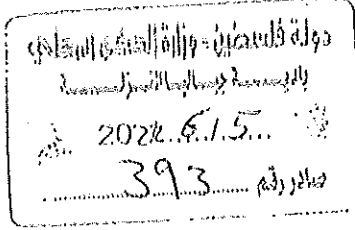 دولة فلسطين - وزارة الحكم المحلي
بلديـــــة
2024.6.1.5...
صادر رقم ......393......